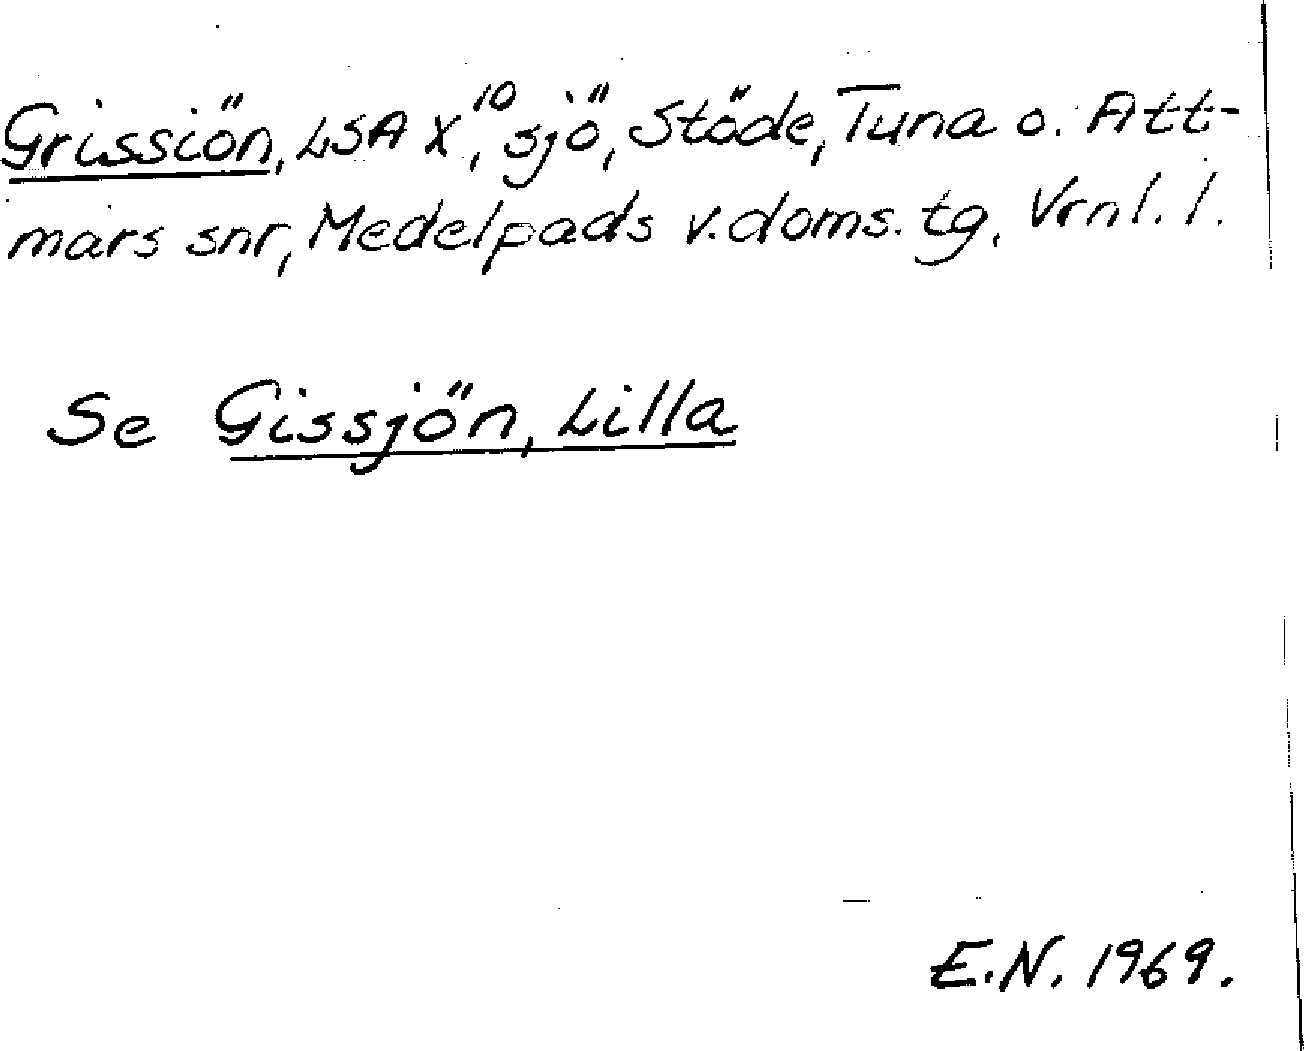 Grissiön, LSA X¹⁰, sjö, Stöde, Tuna o. Att-
mars snr, Medelpads v. doms. tg, Vrnl. l.
Se Gissjön, Lilla
E.N. 1969.